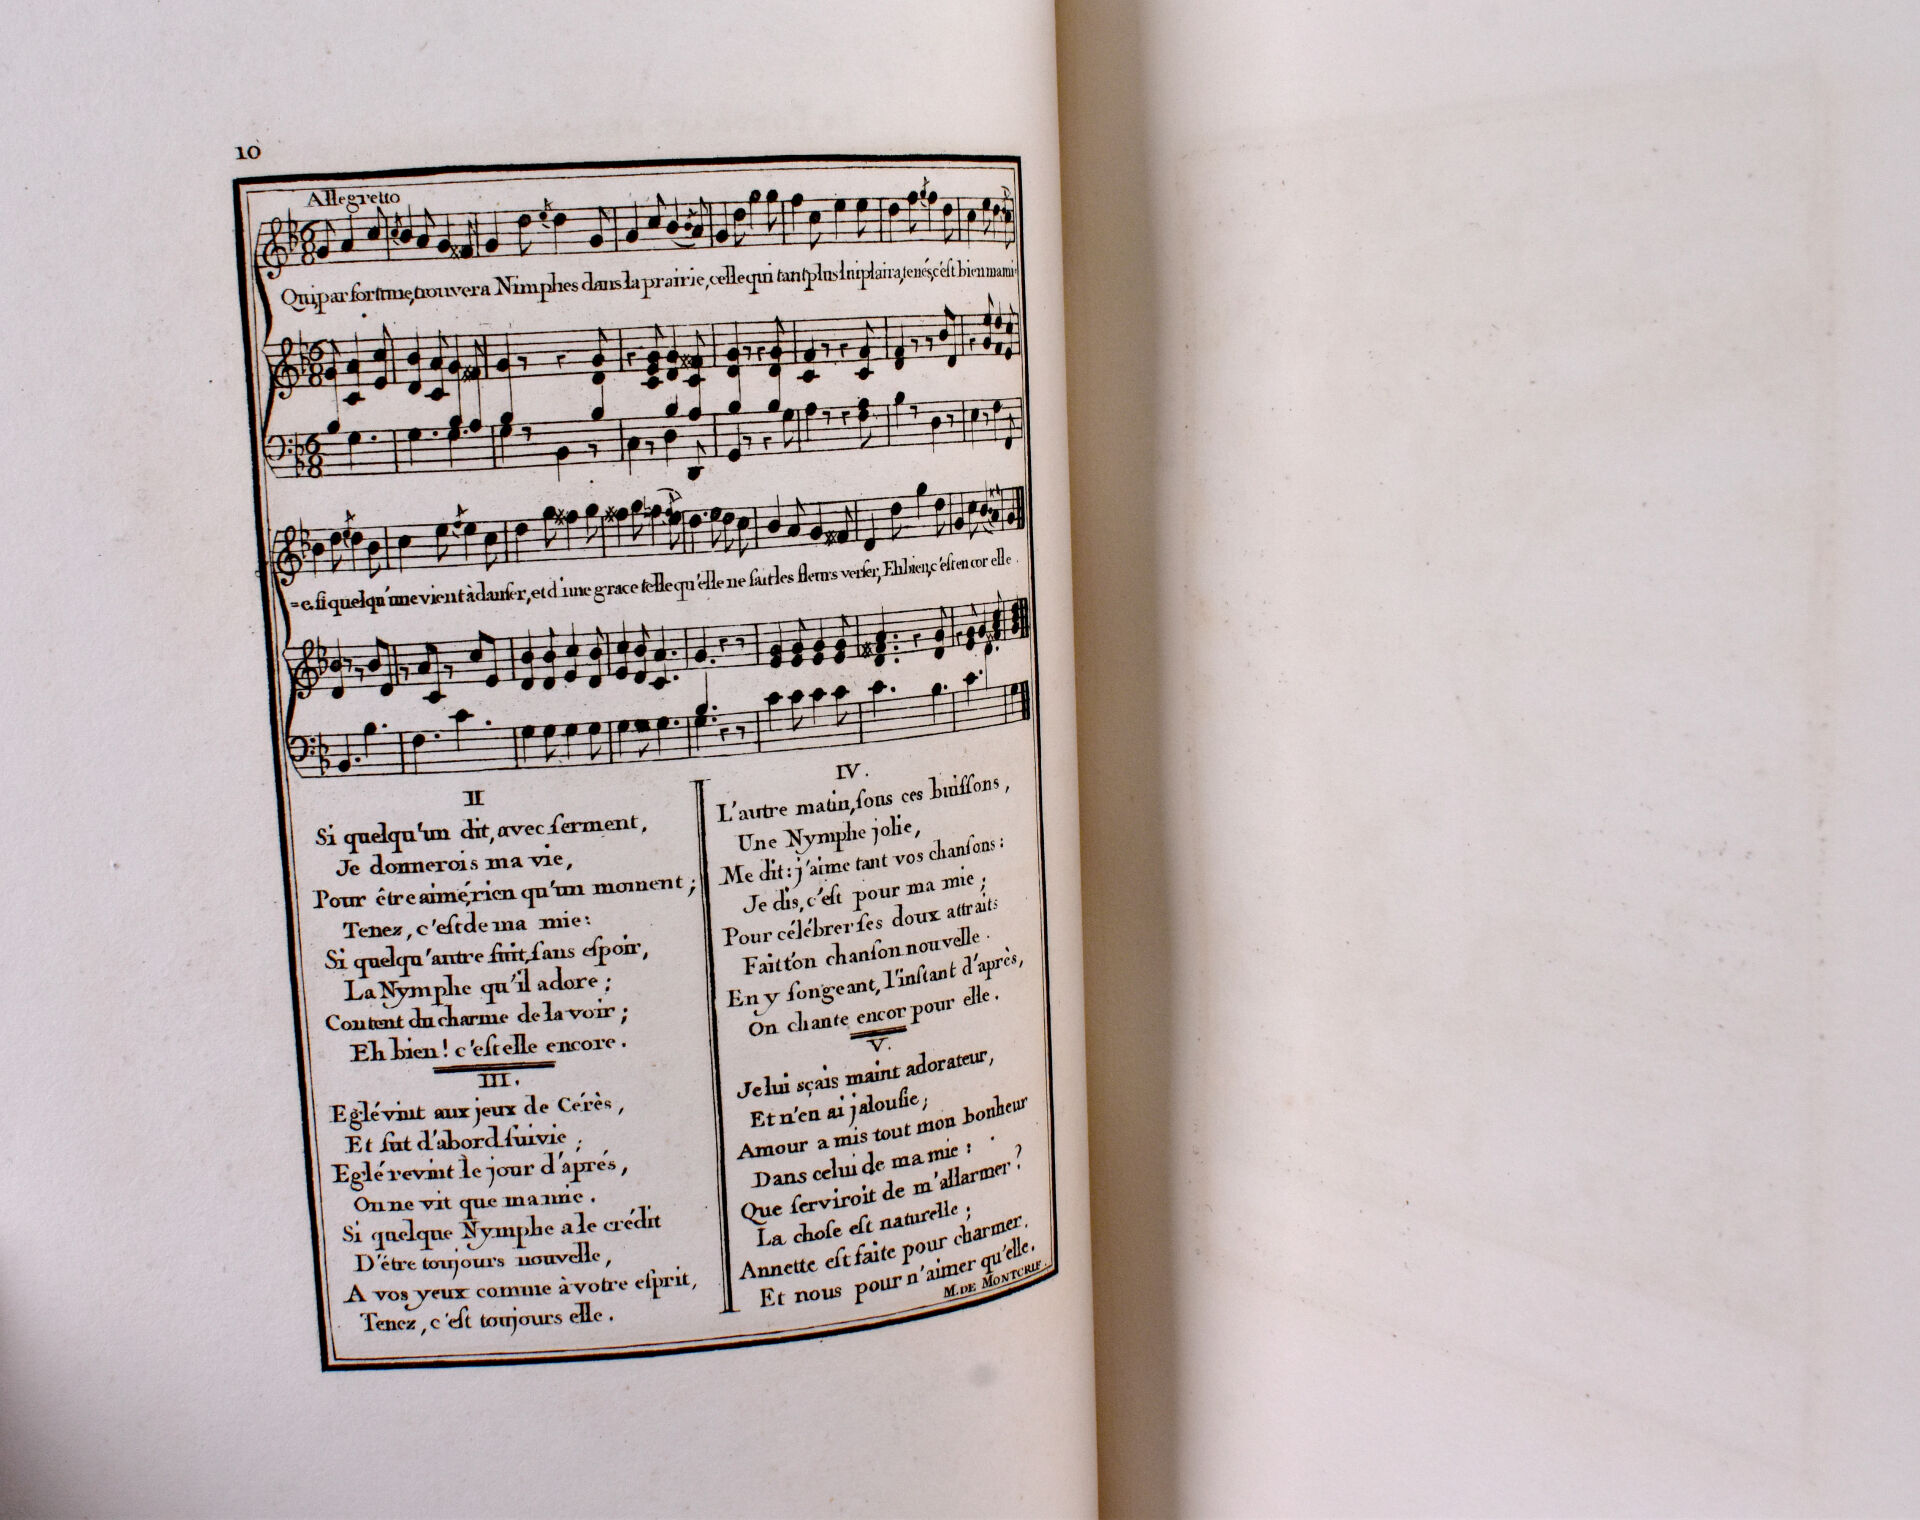 10
Allegretto
Qui par fortune, trouvera Nimphes dans la prairie, celle qui tant plus lui plaira, tenés, c'eſt bien ma mi-
=e. ſi quelqu'une vient à danſer, et d'une grace telle qu'elle ne fait les fleurs verſer, Eh bien, c'eſt en cor elle.
II
Si quelqu'un dit, avec ſerment,
Je donnerois ma vie,
Pour être aimé, rien qu'un moment;
Tenez, c'eſt de ma mie:
Si quelqu'autre ſuit, ſans eſpoir,
La Nymphe qu'il adore;
Content du charme de la voir;
Eh bien! c'eſt elle encore.
III.
Eglé vint aux jeux de Cérès,
Et fut d'abord ſuivie;
Eglé revint le jour d'aprés,
On ne vit que ma mie.
Si quelque Nymphe a le crédit
D'étre toujours nouvelle,
A vos yeux comme à votre eſprit,
Tenez, c'eſt toujours elle.
IV.
L'autre matin, ſous ces buiſſons,
Une Nymphe jolie,
Me dit: j'aime tant vos chanſons:
Je dis, c'eſt pour ma mie;
Pour célébrer ſes doux attraits
Fait t'on chanſon nouvelle.
En y ſongeant, l'inſtant d'après,
On chante encor pour elle.
V.
Je lui sçais maint adorateur,
Et n'en ai jalouſie;
Amour a mis tout mon bonheur
Dans celui de ma mie:
Que ſerviroit de m'allarmer?
La choſe eſt naturelle;
Annette eſt faite pour charmer.
Et nous pour n'aimer qu'elle.
M. DE MONTCRIF.